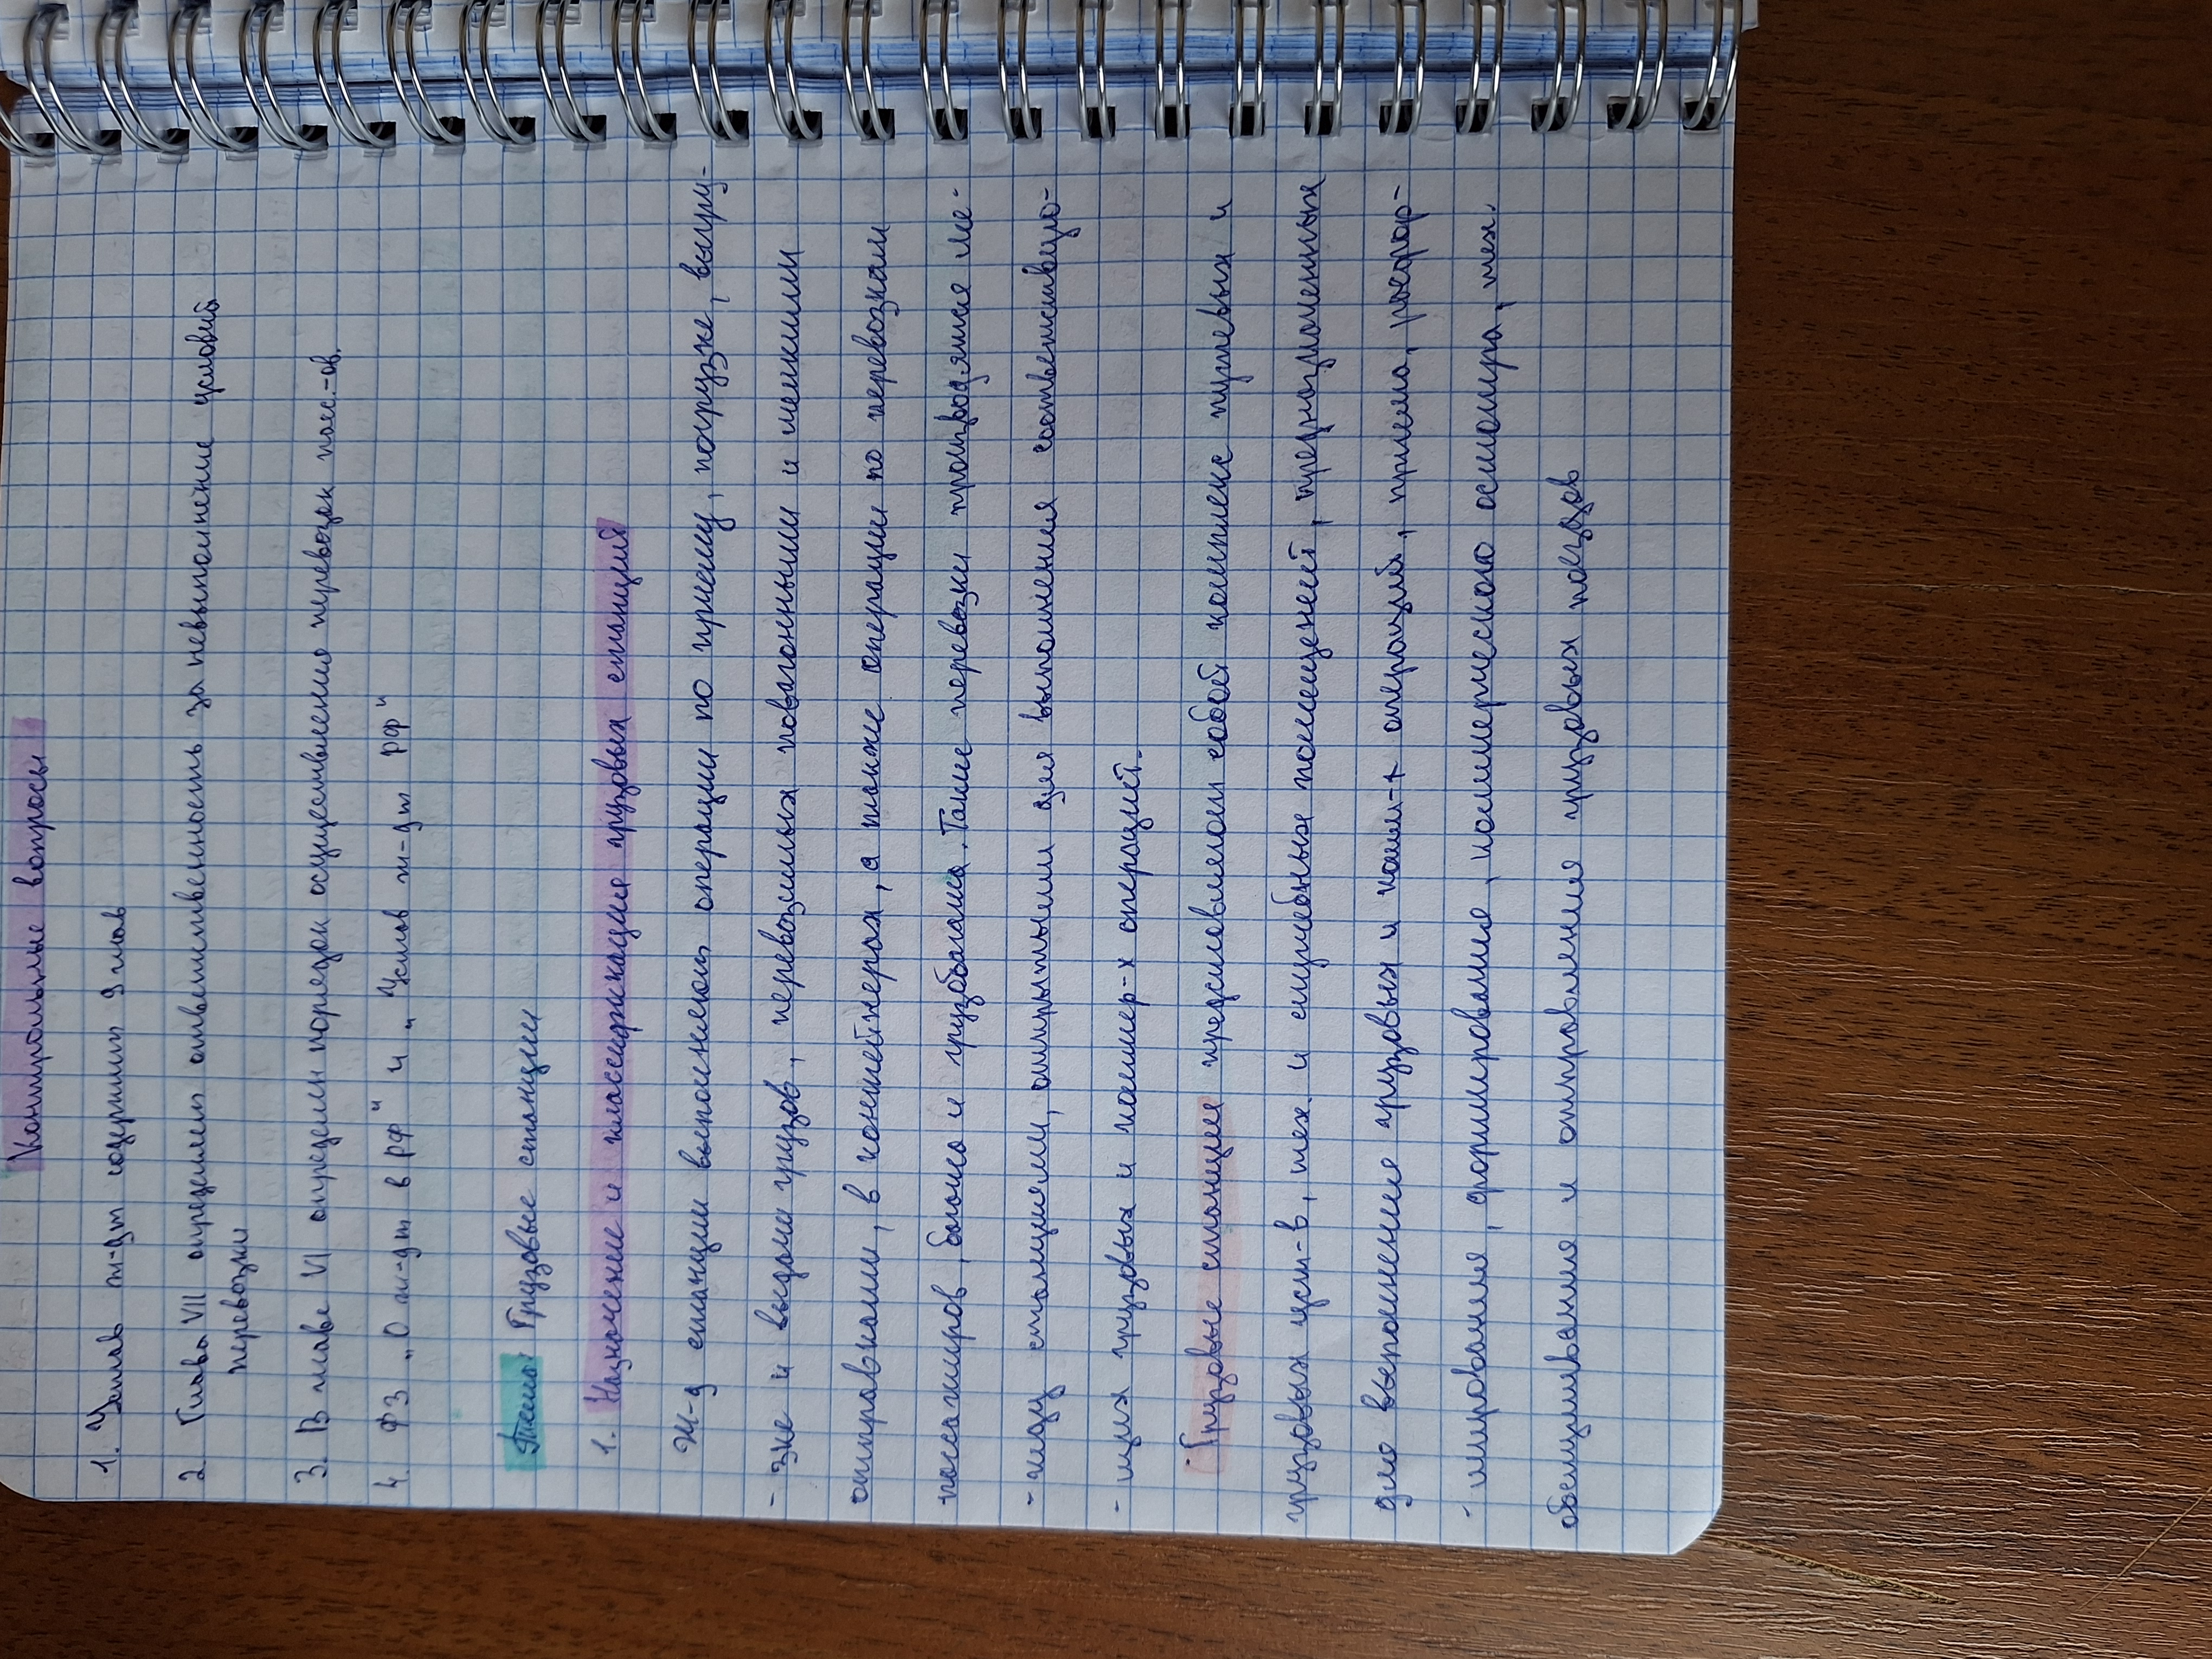 Контрольные вопросы
1. Устав ж-дт содержит 9 глав
2. Глава VII определяет ответственность за невыполнение условий
перевозки
3. В главе VI определен порядок осуществления перевозок пасс-ов.
4. ФЗ „О ж-дт в РФ" и „Устав ж-дт РФ"
Тема: Грузовые станции
1. Назначение и классификация грузовых станций
Ж-д станции выполняют операции по приему, погрузке, выгру-
- зке и выдачи грузов, перевозимых повагонными и мелкими
отправками, в контейнерах, а также операции по перевозкам
пассажиров, багажа и грузобагажа. Такие перевозки производятся ме-
- жду станциями, открытыми для выполнения соответствую-
- щих грузовых и коммер-х операций.
Грузовые станции представляют собой комплекс путевых и
грузовых уст-в, тех. и служебных помещений, предназначенных
для выполнения грузовых и комм-х операций, приема, расфор-
- мирования, формирования, коммерческого осмотра, тех.
обслуживания и отправления грузовых поездов